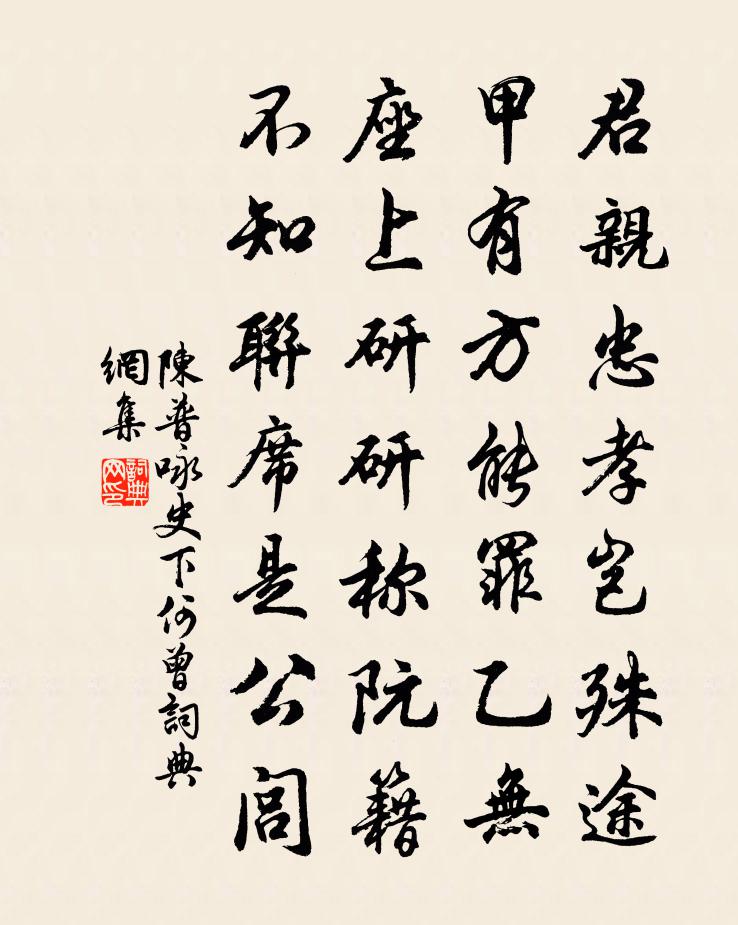 君親忠孝豈殊途
甲有方能罪乙無
座上研研称阮籍
不知聯席是公閭
陳普咏史下何曾詞典
網集
詞典网印